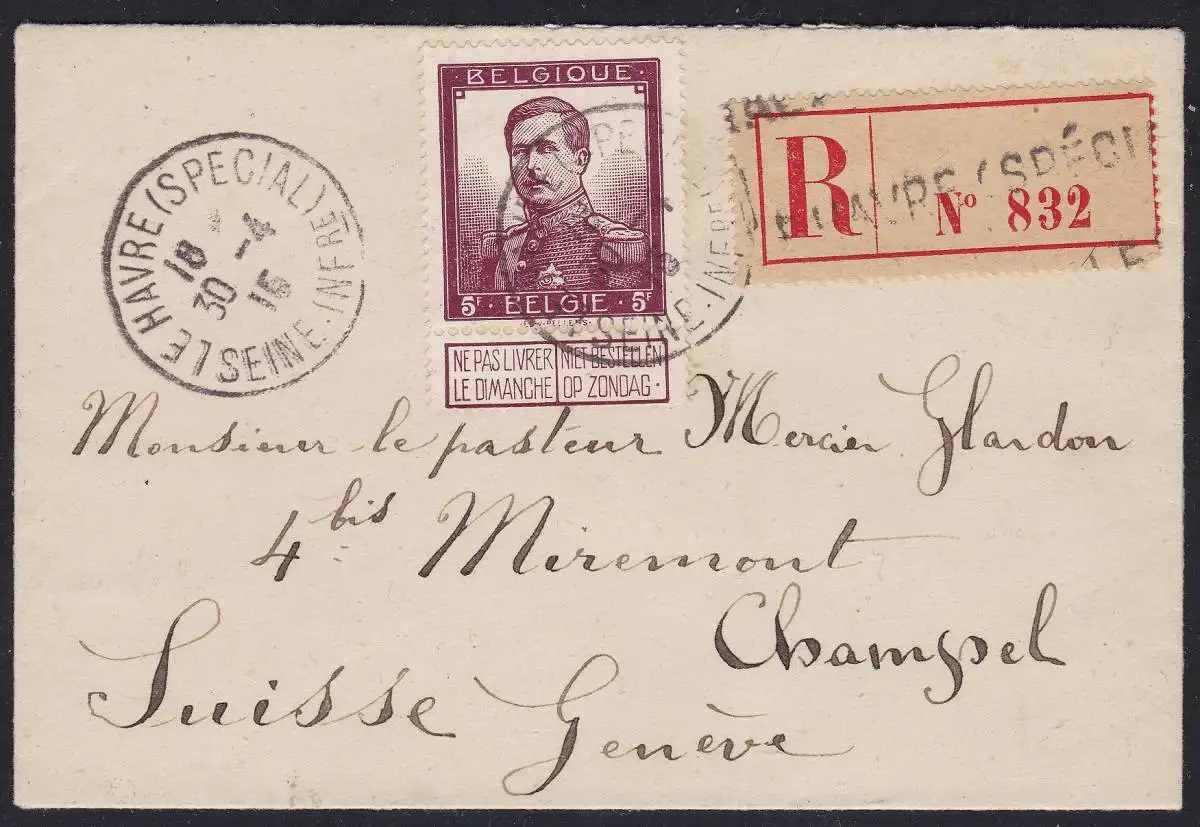 BELGIQUE
5F BELGIE 5F
NE PAS LIVRER NIET BESTELLEN
LE DIMANCHE OP ZONDAG.
LE HAVRE (SPECIAL) SEINE-INFRE
18
30 -4
15
SEINE-INFRE
R
HAVRE (SPÉCI
Nº 832
Monsieur le pasteur Mercier Glardon
4 bis Miremont
Champel
Suisse Genève